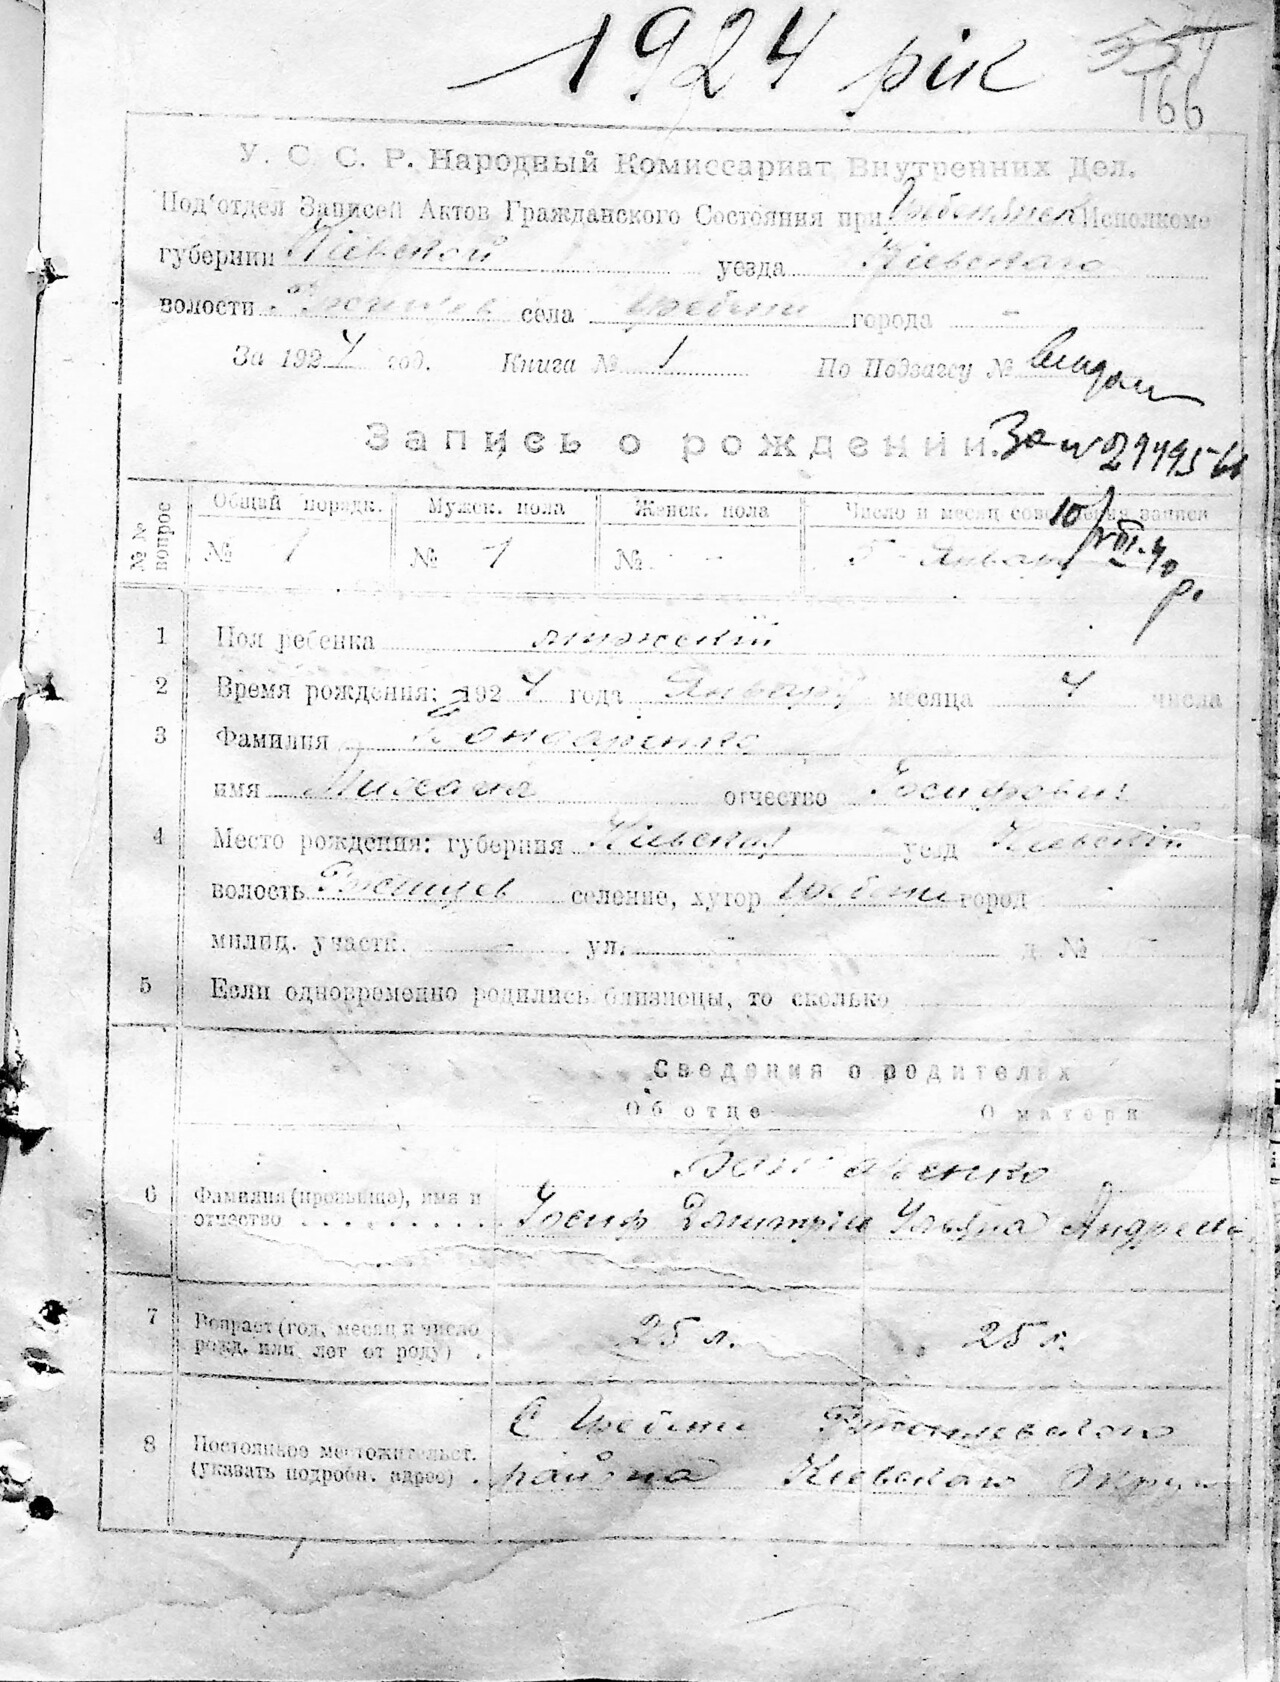 1924 рік
554
166
У. С. С. Р. Народный Комиссариат Внутренних Дел.
Под'отдел Записей Актов Гражданского Состояния при Исполкоме
губернии Кіевской уезда Кіевского
волости села Гребени города -
За 1924 год. Книга № 1 По Подзагсу №
Запись о рождении. За №
№№ вопрос
Общий порядк. Мужск. пола Женск. пола Число и месяц совершения записи
№ 1 № 1 № - 5 - Января
10/VIII-40 р.
1 Пол ребенка мужскій
2 Время рождения: 1924 года Января месяца 4 числа
3 Фамилия Бондаренко
имя Михаил отчество Іосифович
4 Место рождения: губерния Кіевская уезд Кіевскій
волость Ржищев селение, хутор Гребени город
милиц. участк. - ул. д. №
5 Если одновременно родились близнецы, то сколько
Сведения о родителях
Об отце О матери
Бондаренко
6 Фамилия (прозвище), имя и
отчество . . . . . . . . . Іосиф Ульяна Андреев
7 Возраст (год, месяц и число
рожд. или лет от роду) . 25 л. 25 л.
8 Постоянное местожительст.
(указать подробн. адрес) .
С Гребени Ржищевского
района Кіевского Округа